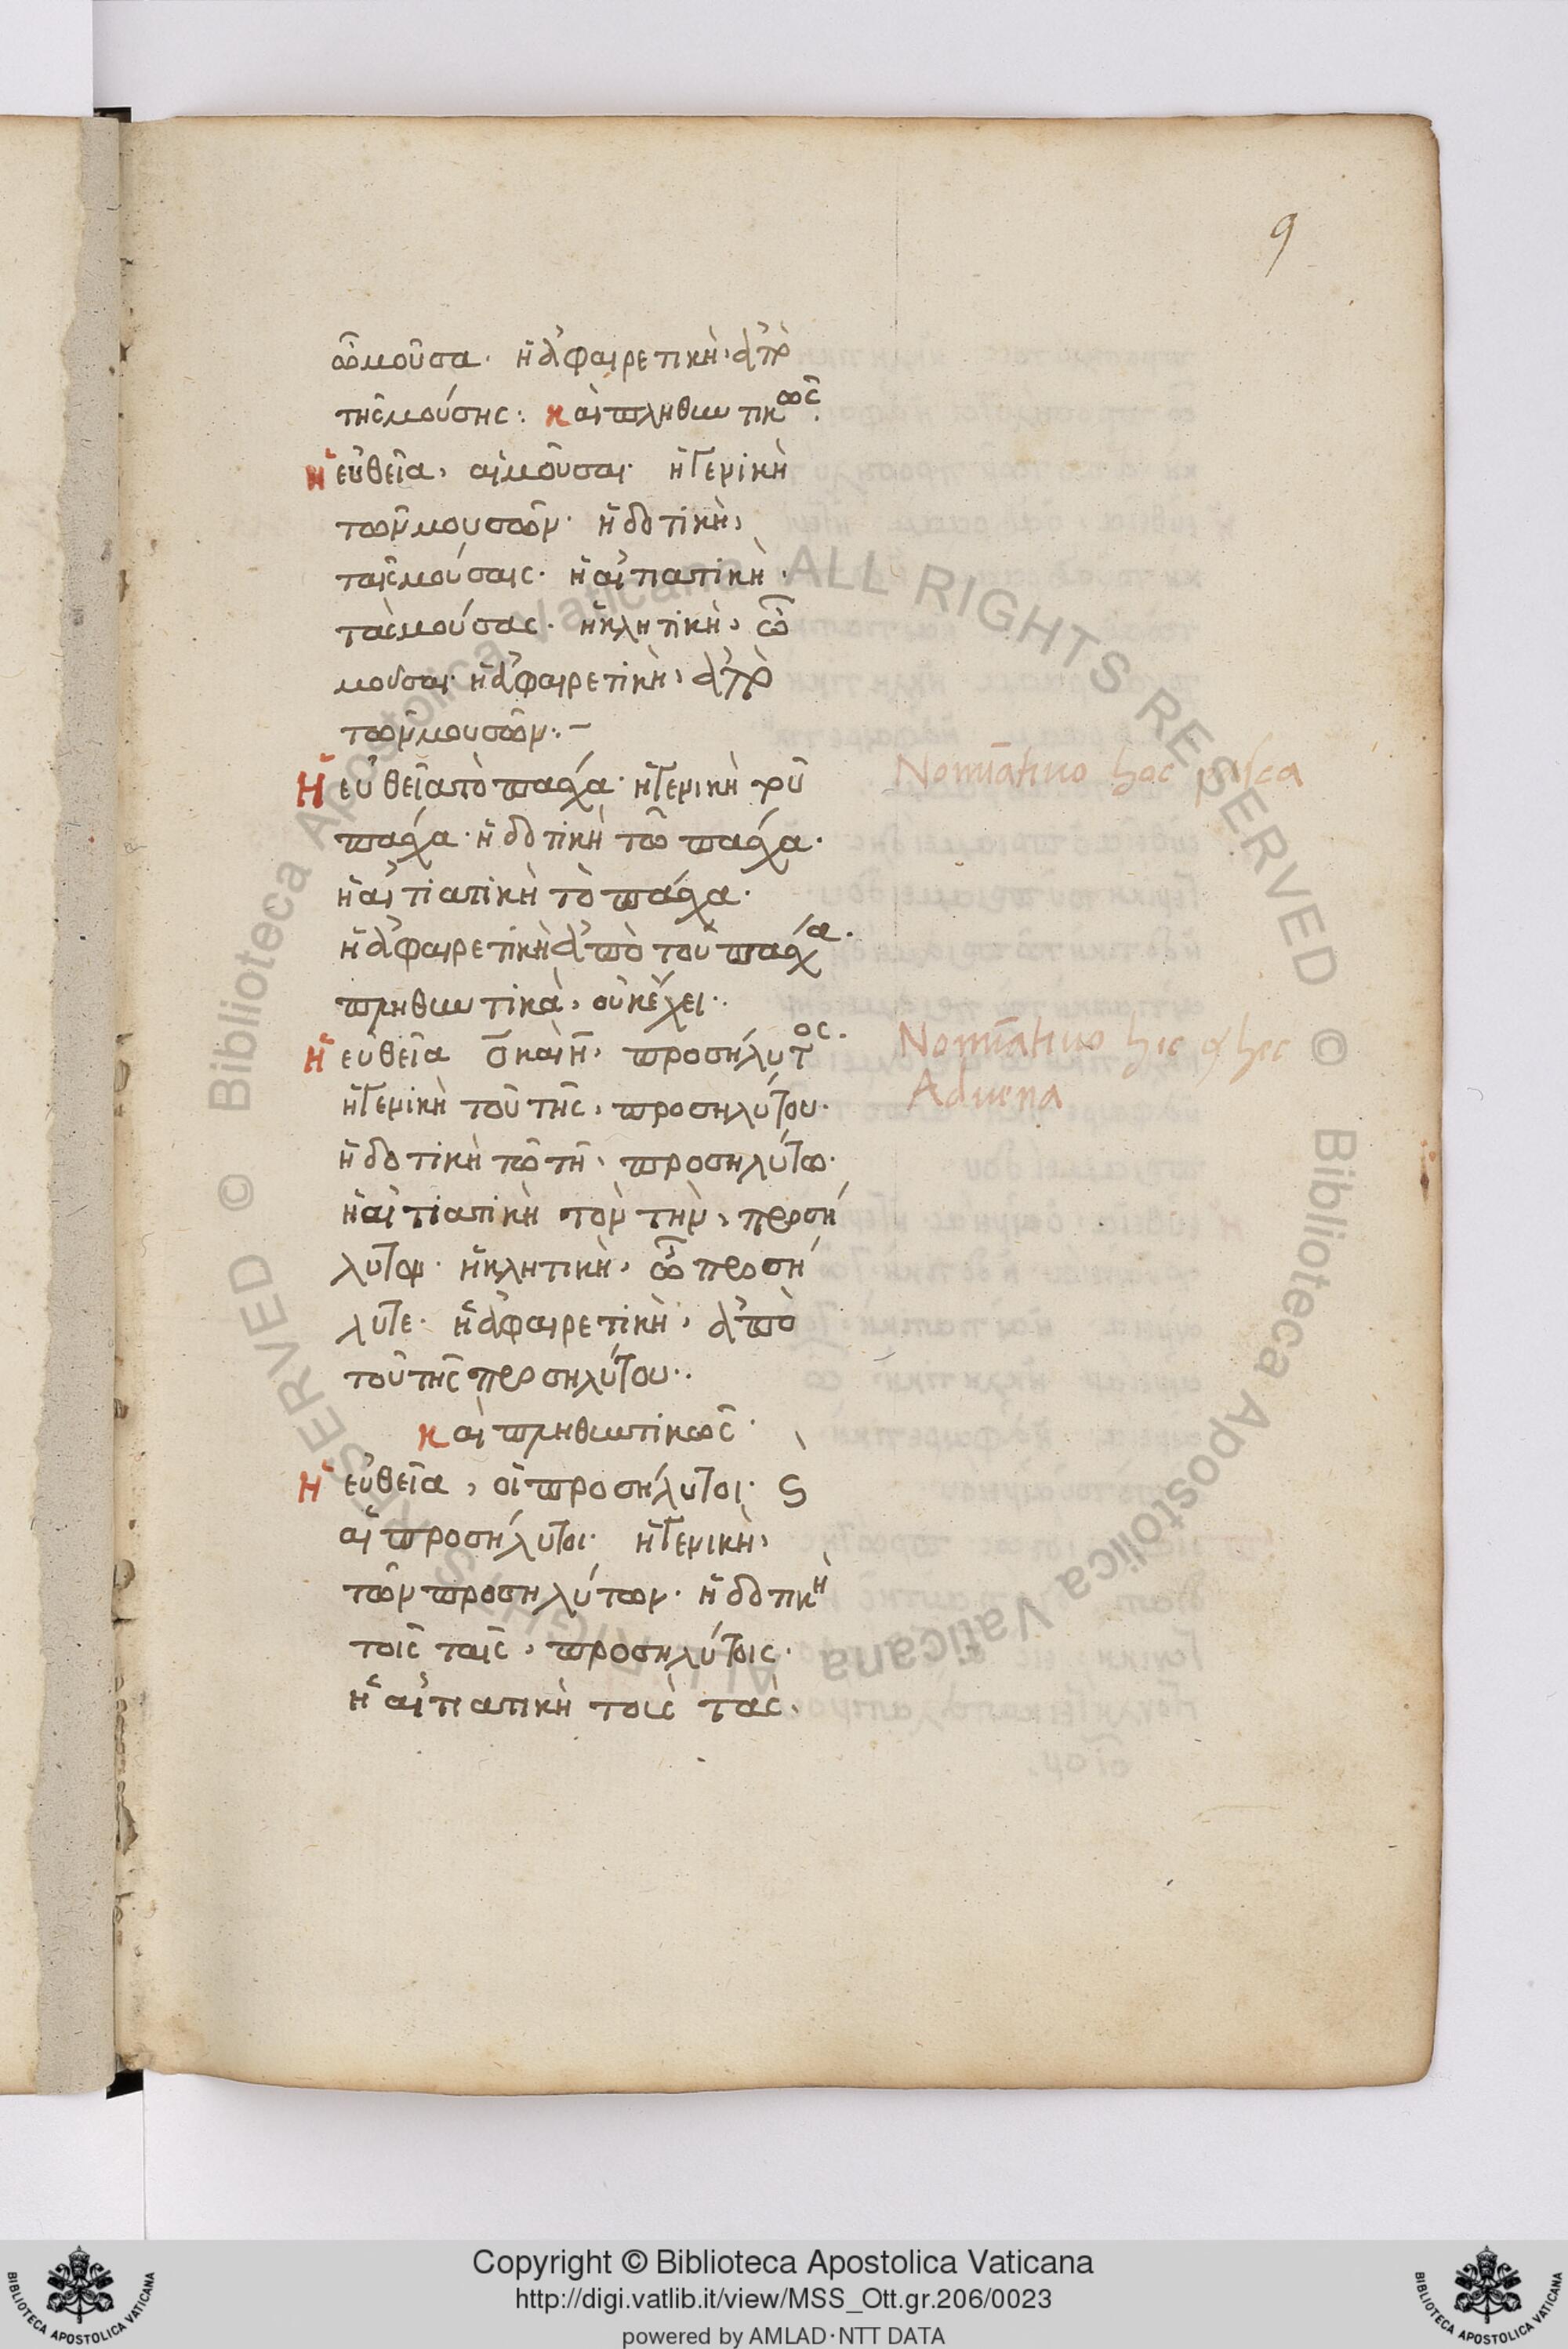 9
ὦ μοῦσα· ἡ ἀφαιρετικὴ, ἀπὸ
τῆς μούσης: καὶ πληθυντικῶς.
Ἡ εὐθεῖα, αἱ μοῦσαι· ἡ γενικὴ
τῶν μουσῶν· ἡ δοτικὴ,
ταῖς μούσαις· ἡ αἰτιατικὴ.
τὰς μούσας· ἡ κλητικὴ, ὦ
μοῦσαι· ἡ ἀφαιρετικὴ, ἀπὸ
τῶν μουσῶν:–
Ἡ εὐθεῖα τὸ πάσχα· ἡ γενικὴ τοῦ
Nomiātiuo hoc pasca
πάσχα· ἡ δοτικὴ τῶ πάσχα·
ἡ αἰτιατικὴ τὸ πάσχα·
ἡ ἀφαιρετικὴ ἀπὸ τοῦ πάσχα·
πληθυντικὰ, οὐκ ἔχει:
Ἡ εὐθεῖα ὁ καὶ ἡ, προσήλυτος·
Nomiātiuo hic & hec
ἡ γενικὴ τοῦ τῆς, προσηλύτου·
Aduena
ἡ δοτικὴ τῶ τῆ, προσηλύτω·
ἡ αἰτιατικὴ τὸν τὴν, προσή
λυτον· ἡ κλητικὴ, ὦ προσή
λυτε· ἡ ἀφαιρετικὴ, ἀπὸ
τοῦ τῆς προσηλύτου:
καὶ πληθυντικῶς·
Ἡ εὐθεῖα, οἱ προσήλυτοι· ϛ
αἱ προσήλυτοι· ἡ γενικὴ,
τῶν προσηλύτων· ἡ δοτικὴ
τοῖς ταῖς, προσηλύτοις·
ἡ αἰτιατικὴ τοὺς τὰς,
© Biblioteca Apostolica Vaticana ALL RIGHTS RESERVED © Biblioteca Apostolica Vaticana ALL RIGHTS RESERVED
Copyright © Biblioteca Apostolica Vaticana
http://digi.vatlib.it/view/MSS_Ott.gr.206/0023
powered by AMLAD·NTT DATA
BIBLIOTECA APOSTOLICA VATICANA
BIBLIOTECA APOSTOLICA VATICANA